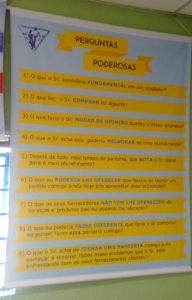 PERGUNTAS
PODEROSAS
1) O que o Sr. considera FUNDAMENTAL em um vendedor?
2) O que fez o Sr. COMPRAR de alguém?
3) O que faria o Sr. MUDAR DE OPINIÃO quanto a nossa empresa?
4) O que o Sr. acha que poderia MELHORAR no meu atendimento?
5) Depois de todo esse tempo de parceria, que NOTA o Sr. daria
para o meu atendimento?
6) O que eu PODERIA LHE OFERECER que faria o Sr. fechar um
pedido comigo ainda hoje pra aproveitar essa promoção?
7) O que os seus fornecedores NÃO TEM LHE OFERECIDO de
serviços e produtos que eu poderia lhe oferecer?
8) O que eu poderia FAZER DIFERENTE que faria o Sr. comprar/
negociar/ fazer essa parceria comigo?
9) O que o Sr. acha de FECHAR UMA PARCERIA comigo e eu
começar a resolver todos esses problemas que o Sr. está
enfrentando com os seus fornecedores atuais?